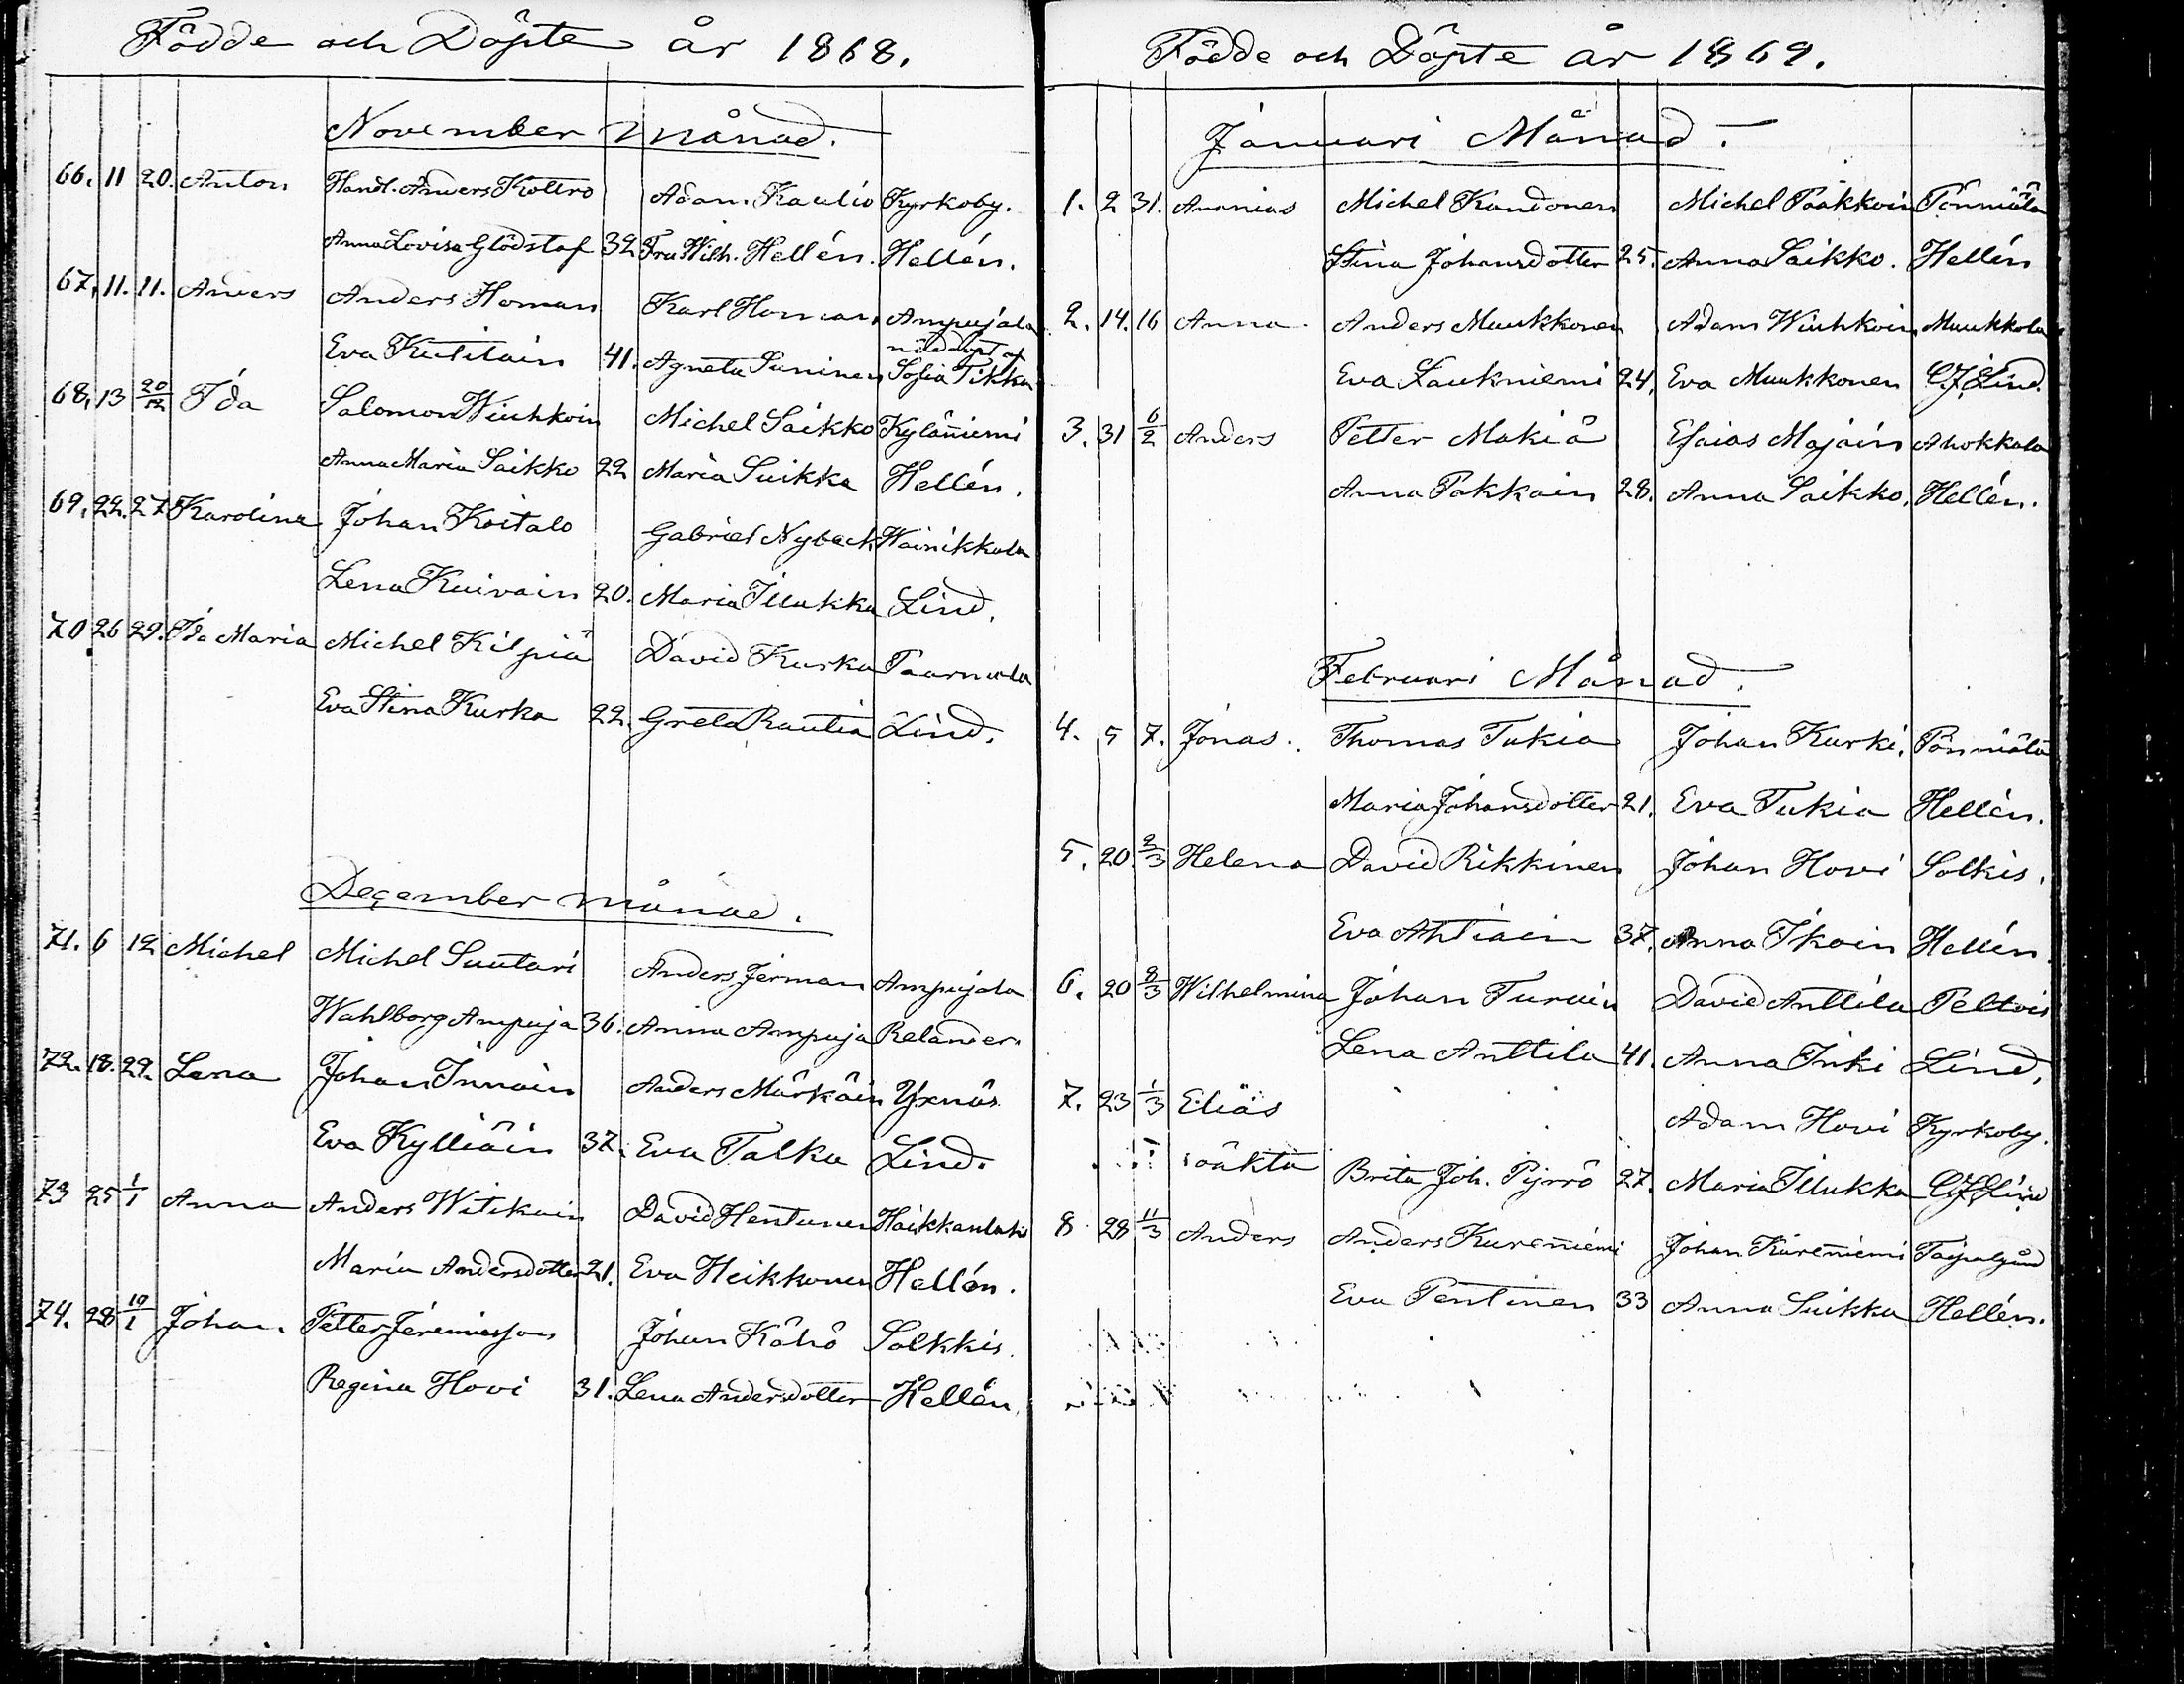 Födde och Döpte år 1868.
November månad.
66. 11 20. Anton Handl. Anders Kottro Adam Kaulio Kyrkoby.
Anna Lovisa Glödstaf 32 Fru Wilh. Hellén. Hellén.
67. 11. 11. Anders Anders Homan Karl Homan Ampujala
Eva Kutilain 41. Agneta Suninen nöddöpt af Sofia Tikka
68. 13 20/12 Ida Salomon Wiuhkoin Michel Saikko Kyläniemi
Anna Maria Saikko 22 Maria Suikka Hellén.
69. 22. 27 Karolina Johan Koitalo Gabriel Nyback Wainikkala
Lena Kuivain 20. Maria Illukka Lind.
70 26 29. Ida Maria Michel Kilpiä David Kurka Paarmala
Eva Stina Kurka 22. Greta Rautia Lind.
December månad.
71. 6 12 Michel Michel Suutari Anders Jerman Ampujala
Wahlborg Ampuja 36. Anna Ampuja Relander.
72. 18. 29. Lena Johan Innain Anders Märkäin Yxnäs
Eva Kylliäin 37. Eva Talka Lind.
73 25 1/1 Anna Anders Witikain David Hentunen
Maria Andersdotter 21. Eva Heikkonen Hellén.
74. 28 19/1 Johan. Petter Jeremiasson Johan Kähö Solkkis.
Regina Hovi 31. Lena Andersdotter Hellén.
Födde och Döpte år 1869.
Januari Månad.
1. 2 31. Ananias Michel Kandonen Michel Paakkoin Pönniälä
Stina Johansdotter 25. Anna Saikko. Hellén
2. 14. 16 Anna. Anders Muukkonen Adam Wiuhkoin Muukkola
Eva Laukniemi 24. Eva Muukkonen C.J. Lind.
3. 31 6/2 Anders Petter Makiä Esaias Majain Ahokkala
Anna Pakkain 28. Anna Saikko. Hellén.
Februari Månad.
4. 5 7. Jonas. Thomas Tukia Johan Kurki. Pönniälä
Maria Johansdotter 21. Eva Tukia Hellén.
5. 20. 2/3 Helena David Rikkinen Johan Hovi Solkis.
Eva Ahtiain 37. Anna Ikoin Hellén.
6. 20 8/3 Wilhelmina Johan Turuin David Anttila Peltois
Lena Anttila 41. Anna Inki Lind.
7. 23 1/3 Elias Adam Hovi Kyrkoby.
oäkta Brita Joh. Pyrrö 27. Maria Illukka C.J. Lind
8 28 11/3 Anders Anders Kureniemi Johan Kureniemi
Eva Pentinen 33 Anna Suikka Hellén.